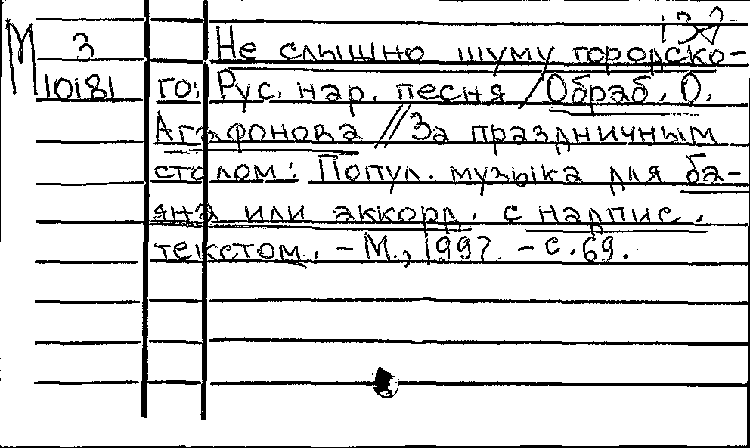 М 3
10181
Не слышно шуму городско-
го: Рус. нар. песня / Обраб. О.
Агафонова // За праздничным
столом: Попул. музыка для ба-
яна или аккорд. с надпис.
текстом. - М., 1997 - с. 69.